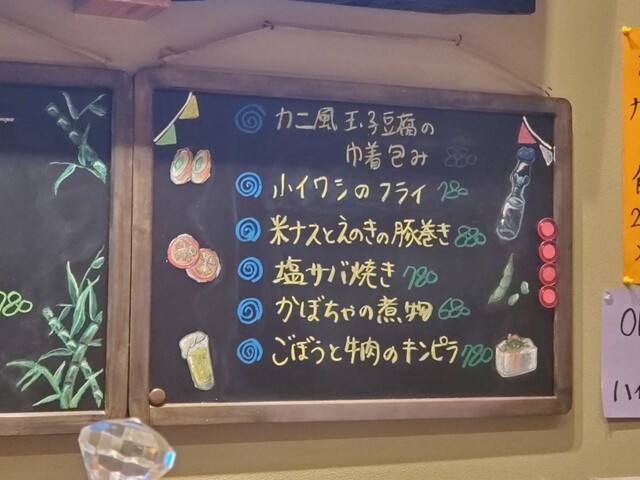 カニ風玉子豆腐の
巾着包み 880
小イワシのフライ 780
米ナスとえのきの豚巻き 880
塩サバ焼き 780
かぼちゃの煮物 680
ごぼうと牛肉のキンピラ 780
780